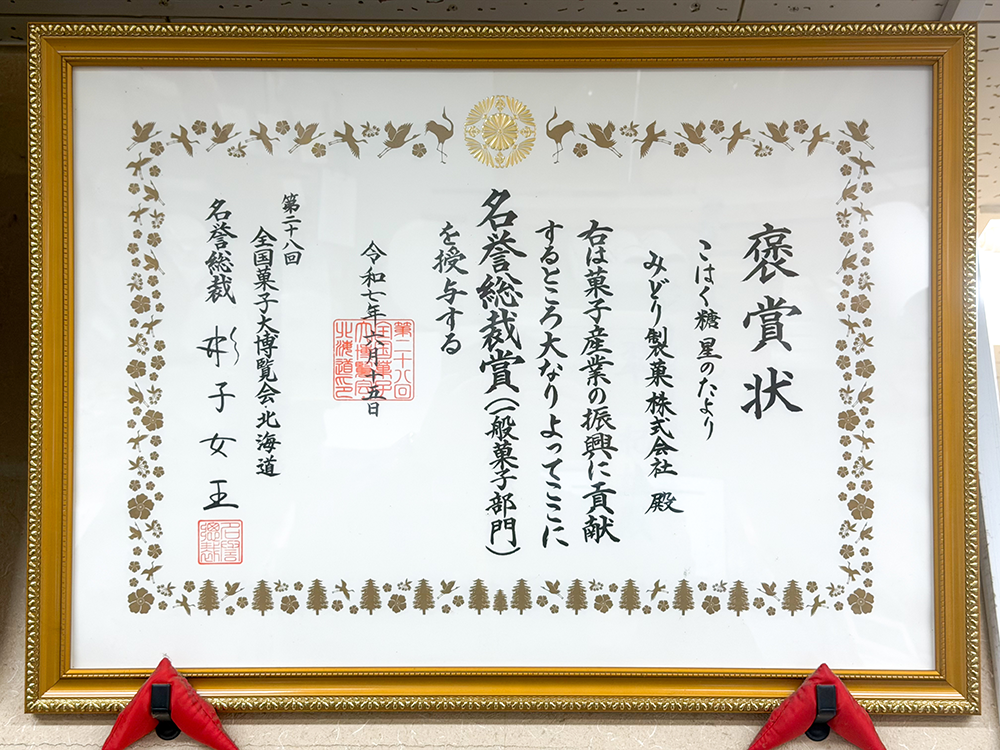 褒賞状
こはく糖星のたより
みどり製菓株式会社 殿
右は菓子産業の振興に貢献
するところ大なりよってここに
名誉総裁賞(一般菓子部門)
を授与する
令和七年六月十五日
第二十八回
全国菓子
大博覧会
北海道之印
第二十八回
全国菓子大博覧会北海道
名誉総裁 彬子女王
名誉
総裁